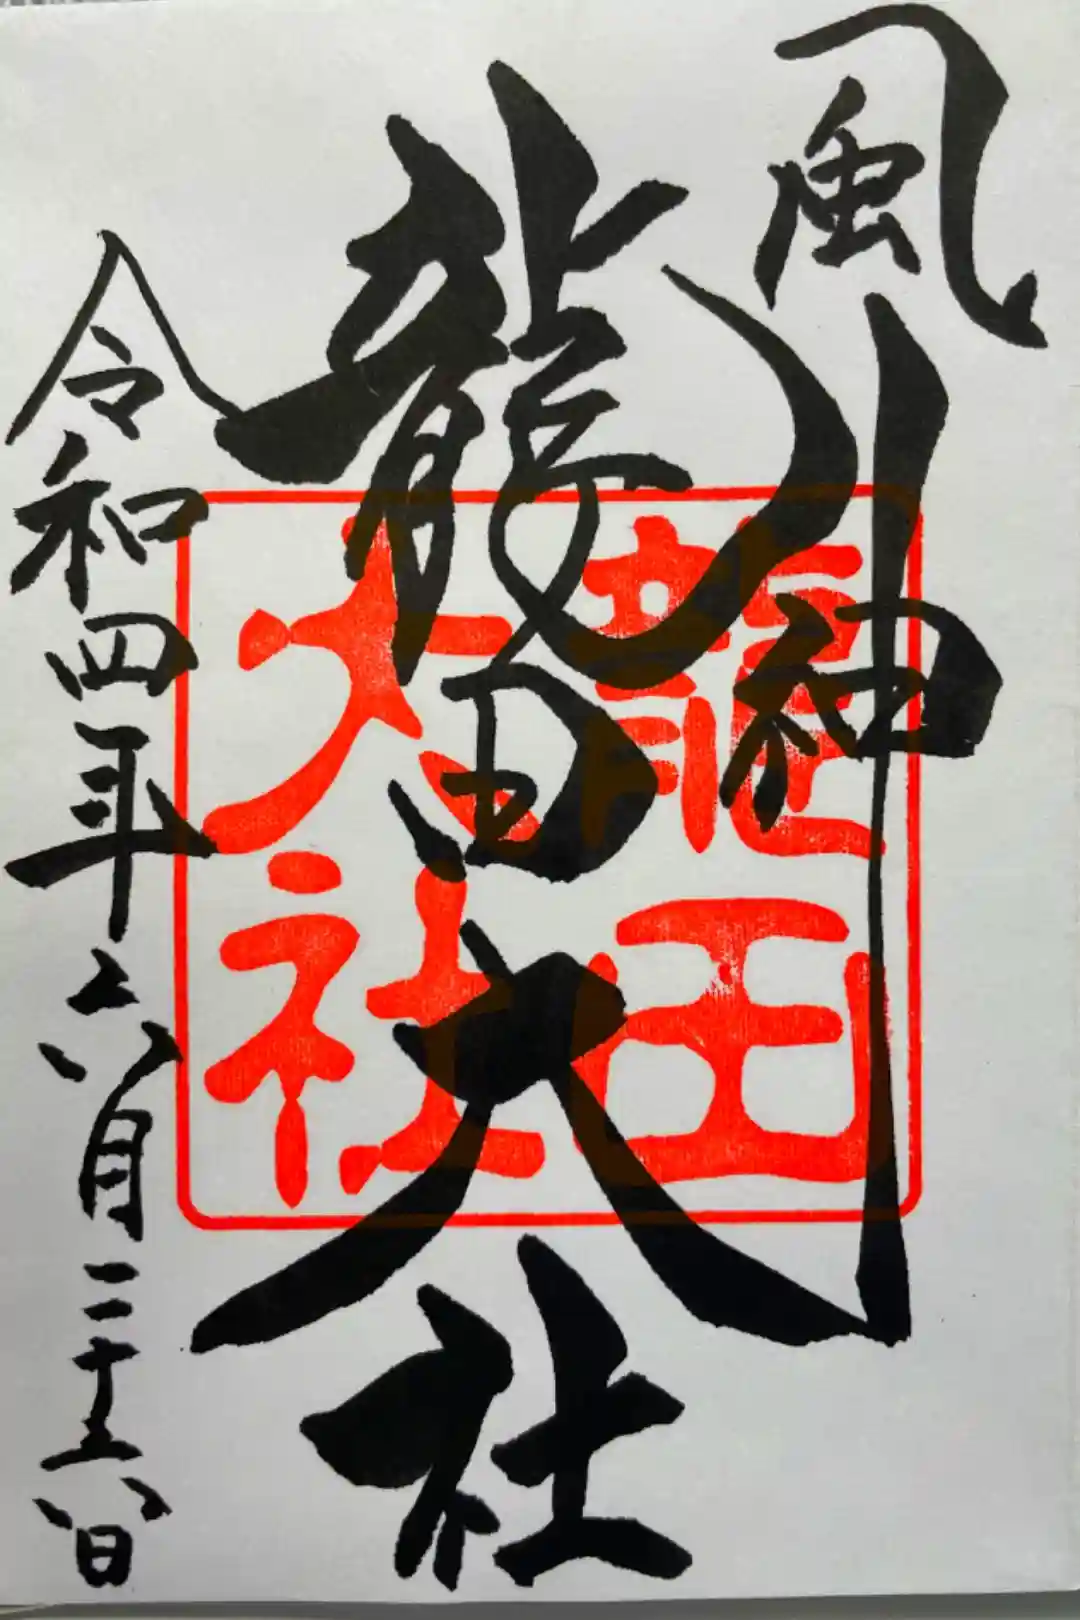 風神
龍田大社
龍田
大社
令和四年六月二十六日